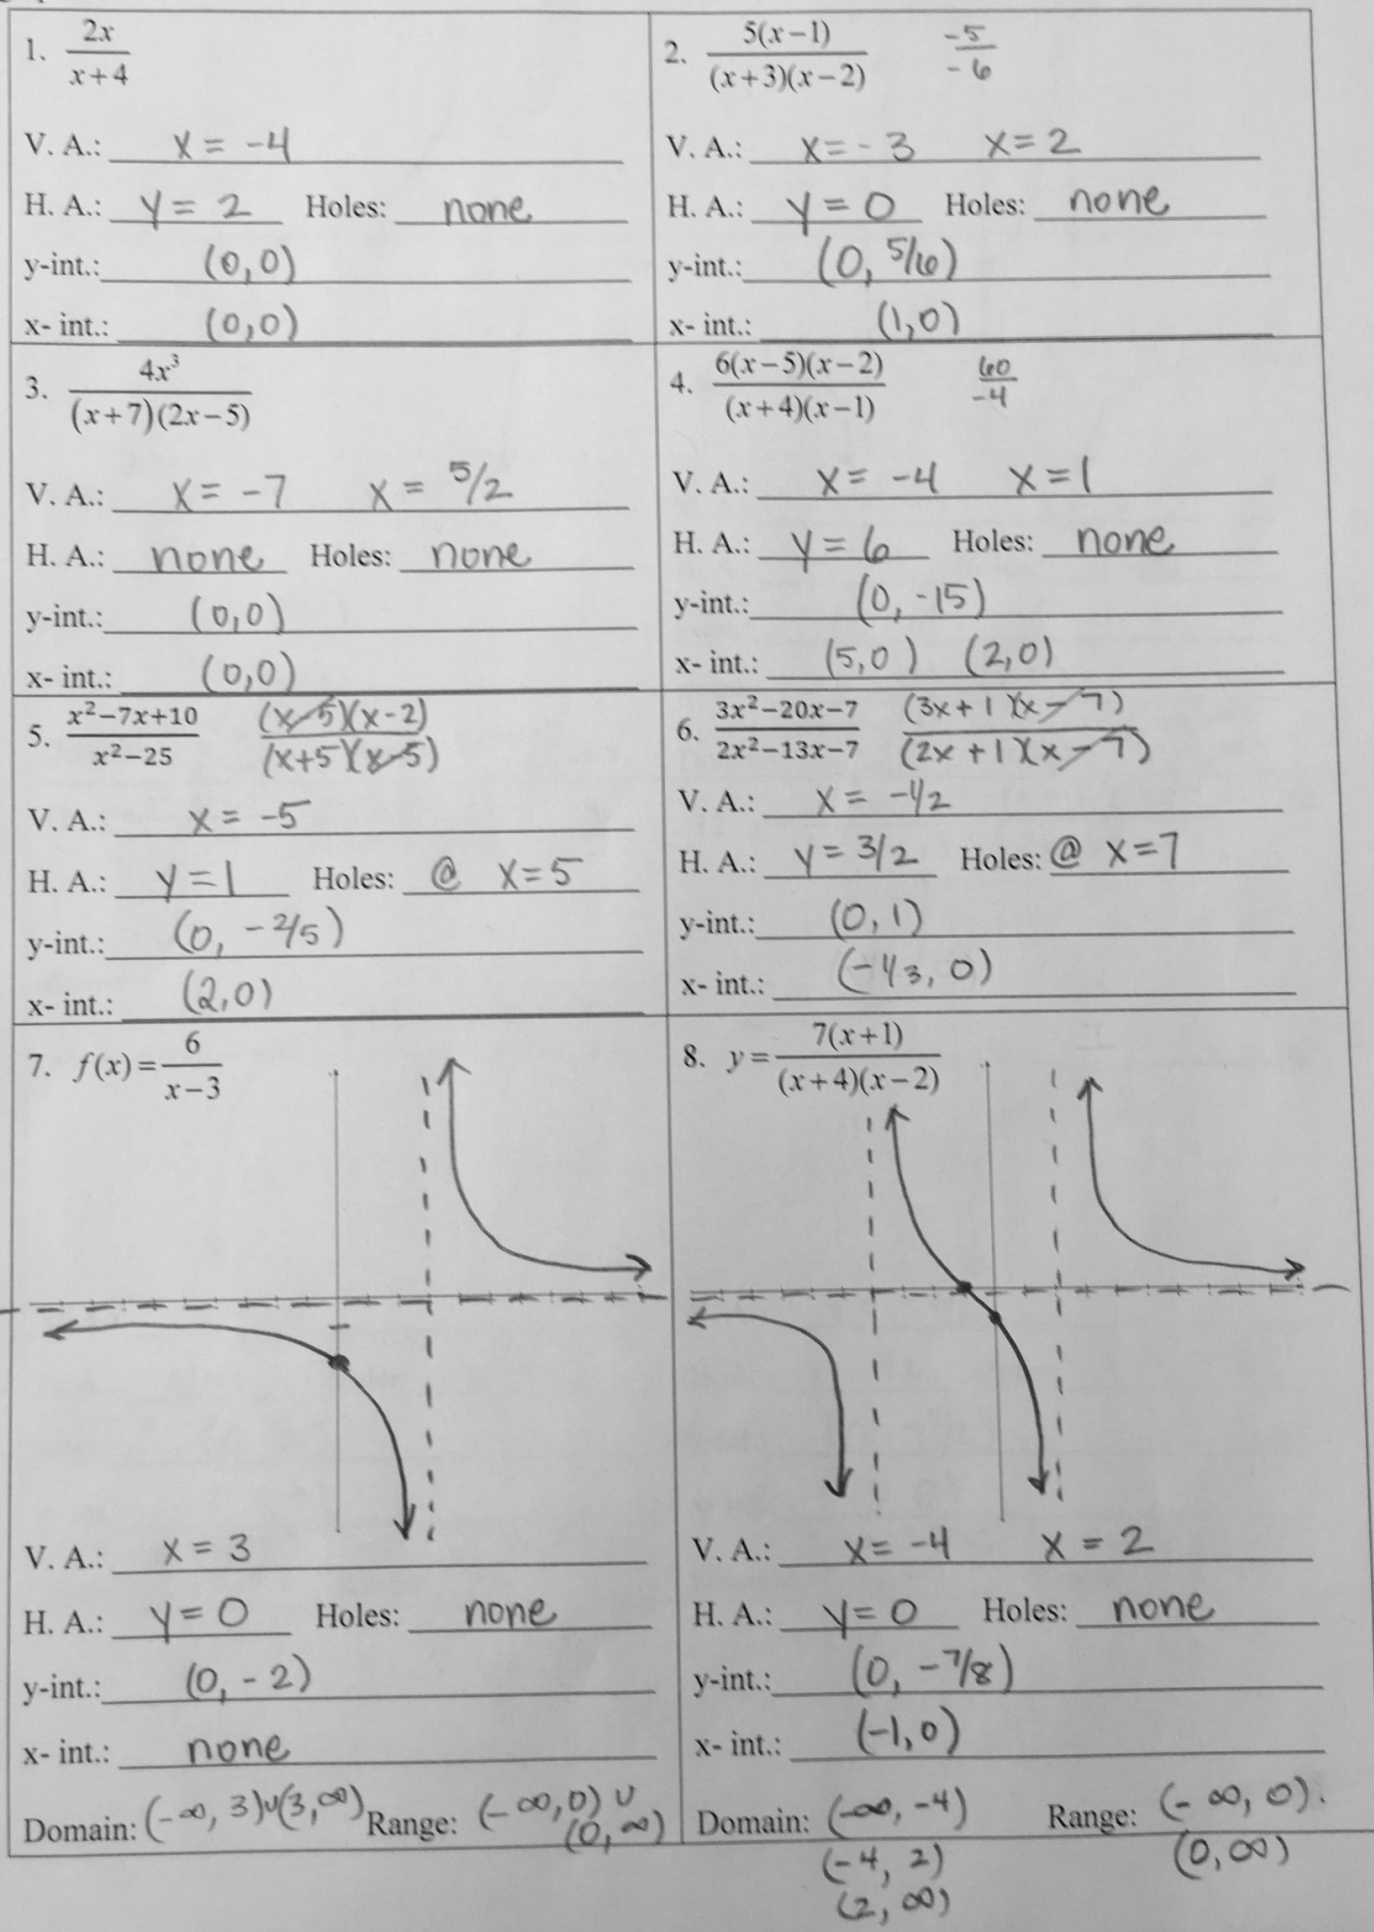 1. 2x/(x+4)
V. A.: x = -4
H. A.: y = 2 Holes: none
y-int.: (0,0)
x- int.: (0,0)
2. 5(x-1)/((x+3)(x-2)) -5/-6
V. A.: x = -3 x = 2
H. A.: y = 0 Holes: none
y-int.: (0, 5/6)
x- int.: (1,0)
3. 4x³/((x+7)(2x-5))
V. A.: x = -7 x = 5/2
H. A.: none Holes: none
y-int.: (0,0)
x- int.: (0,0)
4. 6(x-5)(x-2)/((x+4)(x-1)) 60/-4
V. A.: x = -4 x = 1
H. A.: y = 6 Holes: none
y-int.: (0, -15)
x- int.: (5,0) (2,0)
5. (x²-7x+10)/(x²-25) (x-5)(x-2)/(x+5)(x-5)
V. A.: x = -5
H. A.: y = 1 Holes: @ x = 5
y-int.: (0, -2/5)
x- int.: (2,0)
6. (3x²-20x-7)/(2x²-13x-7) (3x+1)(x-7)/(2x+1)(x-7)
V. A.: x = -1/2
H. A.: y = 3/2 Holes: @ x = 7
y-int.: (0,1)
x- int.: (-1/3, 0)
7. f(x) = 6/(x-3)
V. A.: x = 3
H. A.: y = 0 Holes: none
y-int.: (0, -2)
x- int.: none
Domain: (-∞, 3)∪(3, ∞) Range: (-∞, 0) ∪
(0, ∞)
8. y = 7(x+1)/((x+4)(x-2))
V. A.: x = -4 x = 2
H. A.: y = 0 Holes: none
y-int.: (0, -7/8)
x- int.: (-1,0)
Domain: (-∞, -4) Range: (-∞, 0).
(-4, 2) (0, ∞)
(2, ∞)